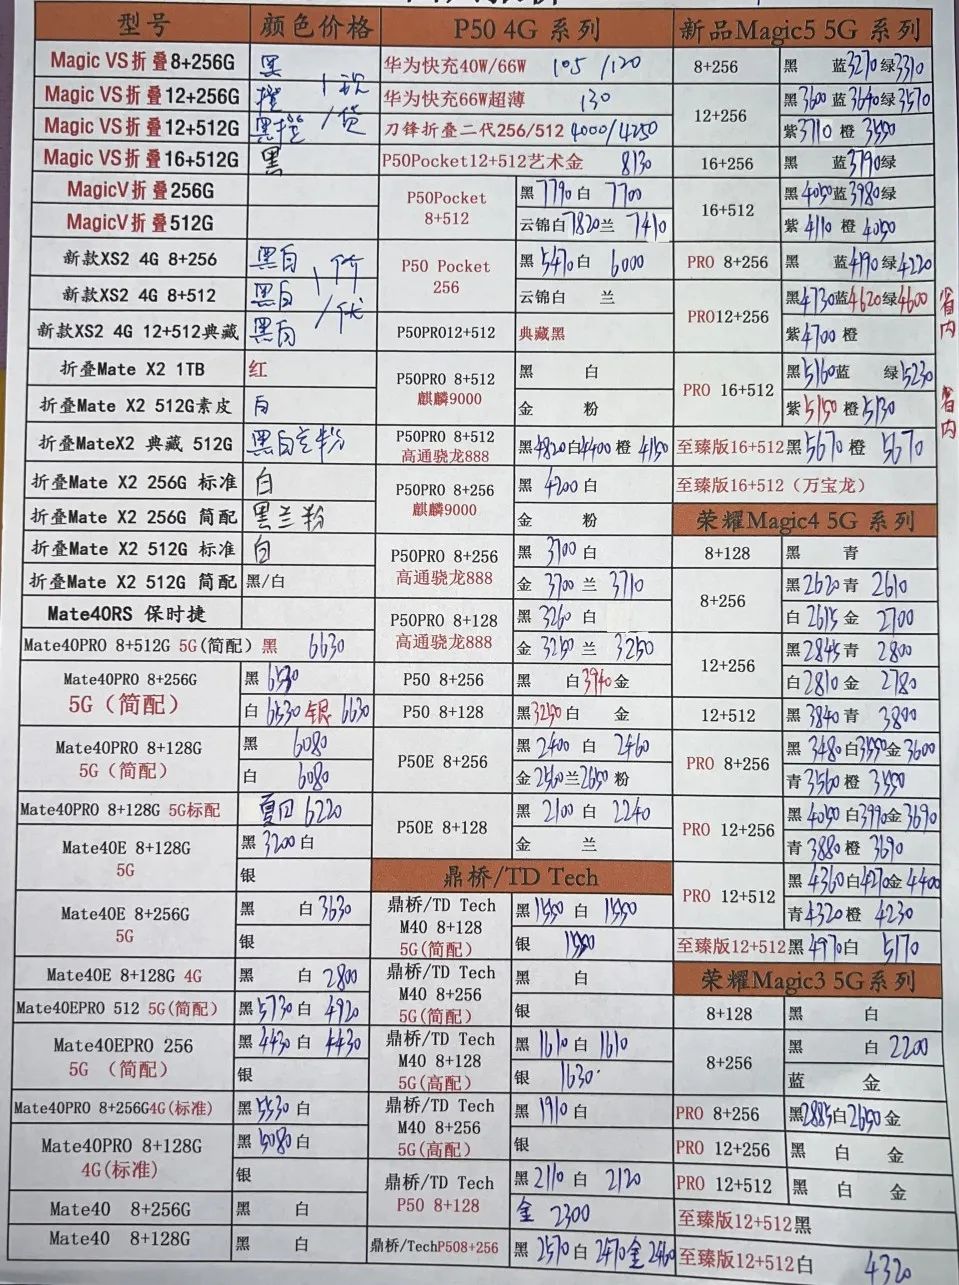 型号 颜色价格
Magic VS折叠8+256G 黑
Magic VS折叠12+256G 橙
Magic VS折叠12+512G 黑橙
Magic VS折叠16+512G 黑
MagicV折叠256G
MagicV折叠512G
新款XS2 4G 8+256 黑白
新款XS2 4G 8+512 黑白
新款XS2 4G 12+512典藏 黑白
折叠Mate X2 1TB 红
折叠Mate X2 512G素皮 白
折叠MateX2 典藏 512G 黑白兰粉
折叠Mate X2 256G 标准 白
折叠Mate X2 256G 简配 黑兰粉
折叠Mate X2 512G 标准 白
折叠Mate X2 512G 简配 黑/白
Mate40RS 保时捷
Mate40PRO 8+512G 5G(简配) 黑 6630
Mate40PRO 8+256G
5G（简配）
黑 6530
白 6530 银 6630
Mate40PRO 8+128G
5G（简配）
黑 6080
白 6080
Mate40PRO 8+128G 5G标配 夏日 6220
Mate40E 8+128G
5G
黑 3200 白
银
Mate40E 8+256G
5G
黑 白 3630
银
Mate40E 8+128G 4G 黑 白 2800
Mate40EPRO 512 5G(简配) 黑 5730 白 4920
Mate40EPRO 256
5G （简配）
黑 4430 白 4430
银
Mate40PRO 8+256G4G(标准) 黑 5530 白
Mate40PRO 8+128G
4G(标准)
黑 5080 白
银
Mate40 8+256G 黑 白
Mate40 8+128G 黑 白
P50 4G 系列
华为快充40W/66W 105 /120
华为快充66W超薄 130
刀锋折叠二代256/512 4000/4250
P50Pocket12+512艺术金 8130
P50Pocket
8+512
黑 7790 白 7700
云锦白 7820 兰 7410
P50 Pocket
256
黑 5470 白 6000
云锦白 兰
P50PRO12+512 典藏黑
P50PRO 8+512
麒麟9000
黑 白
金 粉
P50PRO 8+512
高通骁龙888
黑 4820 白 4400 橙 4150
P50PRO 8+256
麒麟9000
黑 4200 白
金 粉
P50PRO 8+256
高通骁龙888
黑 3700 白
金 3700 兰 3710
P50PRO 8+128
高通骁龙888
黑 3260 白
金 3250 兰 3250
P50 8+256 黑 白 3940 金
P50 8+128 黑 3250 白 金
P50E 8+256
黑 2400 白 2460
金 2560 兰 2650 粉
P50E 8+128
黑 2100 白 2240
金 兰
鼎桥/TD Tech
鼎桥/TD Tech
M40 8+128
5G(简配)
黑 1550 白 1550
银
鼎桥/TD Tech
M40 8+256
5G(简配)
黑 白
银
鼎桥/TD Tech
M40 8+128
5G(高配)
黑 1610 白 1610
银 1630
鼎桥/TD Tech
M40 8+256
5G(高配)
黑 1910 白
银
鼎桥/TD Tech
P50 8+128
黑 2110 白 2120
金 2300
鼎桥/TechP508+256 黑 2570 白 2470 金 2460
新品Magic5 5G 系列
8+256 黑 蓝 3270 绿 3310
12+256
黑 3600 蓝 3640 绿 3570
紫 3710 橙 3550
16+256 黑 蓝 3790 绿
16+512
黑 4050 蓝 3980 绿
紫 4110 橙 4050
PRO 8+256 黑 蓝 4190 绿 4220
PRO12+256
黑 4730 蓝 4620 绿 4600
省内
紫 4700 橙
PRO 16+512
黑 5160 蓝 绿 5230
紫 5150 橙 5130
省内
至臻版16+512 黑 5670 橙 5670
至臻版16+512（万宝龙）
荣耀Magic4 5G 系列
8+128 黑 青
8+256
黑 2620 青 2610
白 2615 金 2700
12+256
黑 2845 青 2800
白 2810 金 2780
12+512 黑 3840 青 3800
PRO 8+256
黑 3480 白 3550 金 3600
青 3560 橙 3550
PRO 12+256
黑 4050 白 3990 金 3690
青 3880 橙 3690
PRO 12+512
黑 4360 白 4270 金 4400
青 4320 橙 4230
至臻版12+512 黑 4970 白 5170
荣耀Magic3 5G系列
8+128 黑 白
8+256
黑 白 2200
蓝 金
PRO 8+256 黑 2885 白 2650 金
PRO 12+256 黑 白 金
PRO 12+512 黑 白 金
至臻版12+512黑
至臻版12+512白 4320